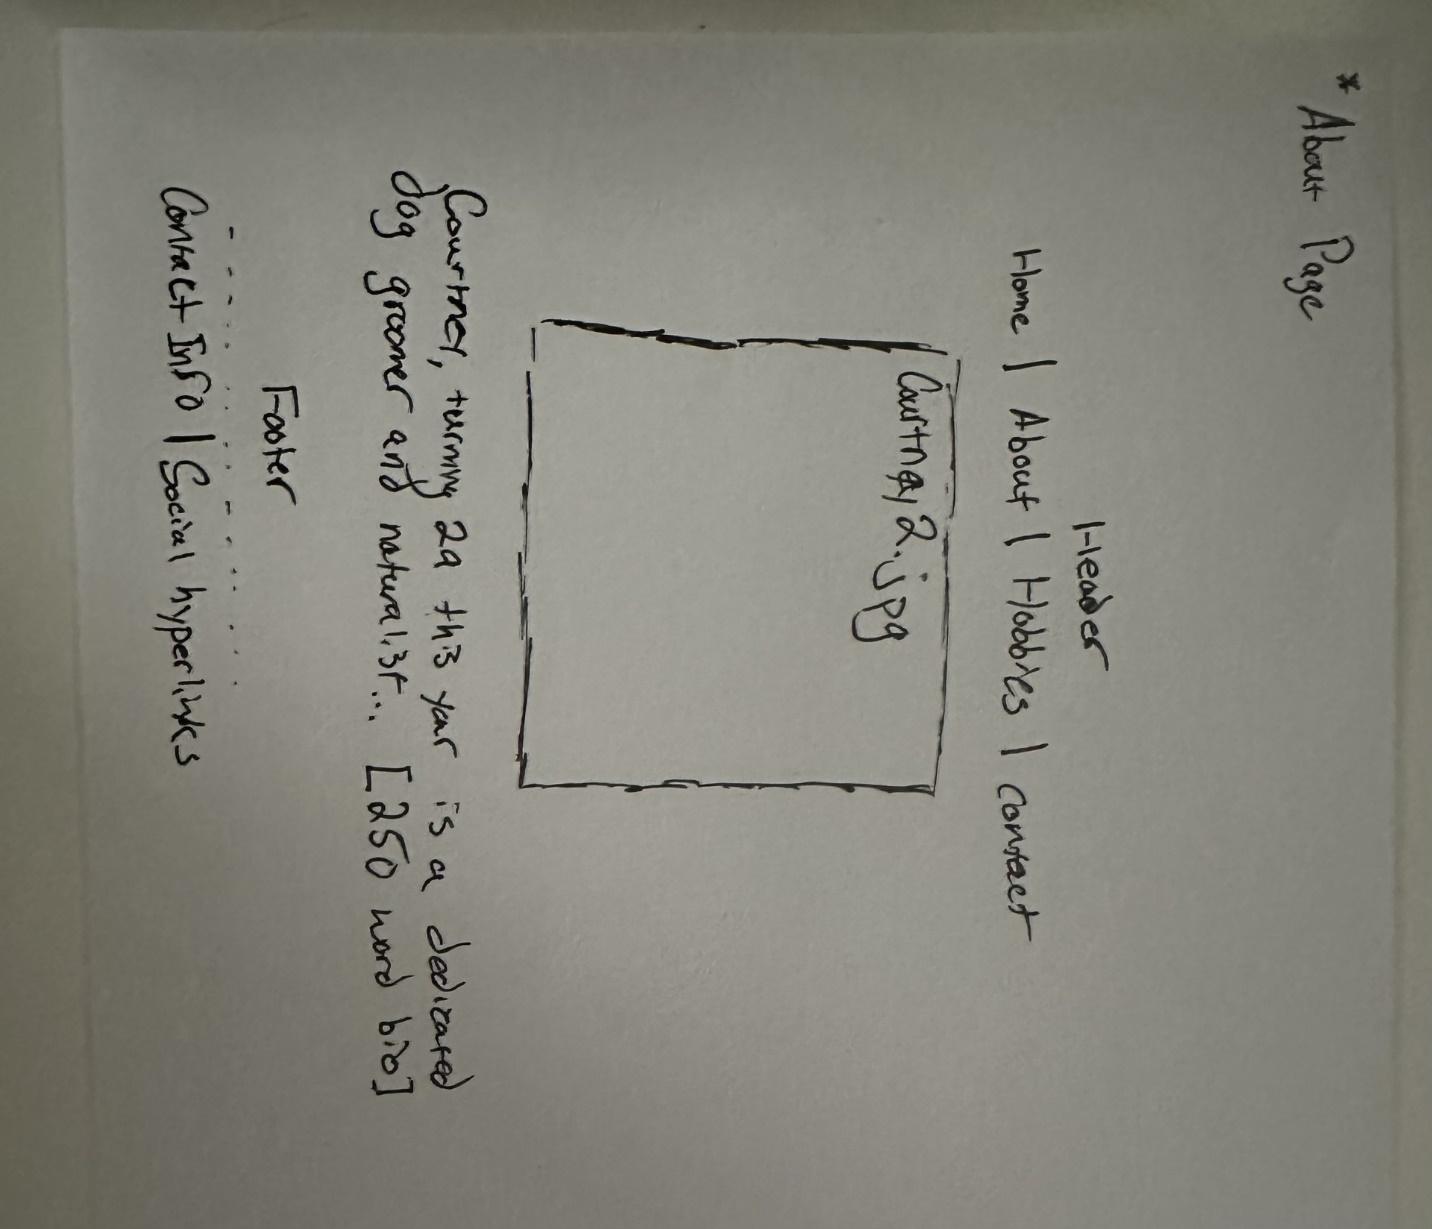 * About Page
Header
Home | About | Hobbies | contact
Courtney2.jpg
Courtney, turning 29 this year is a dedicated
dog groomer and naturalist... [250 word bio]
Footer
Contact Info | Social hyperlinks